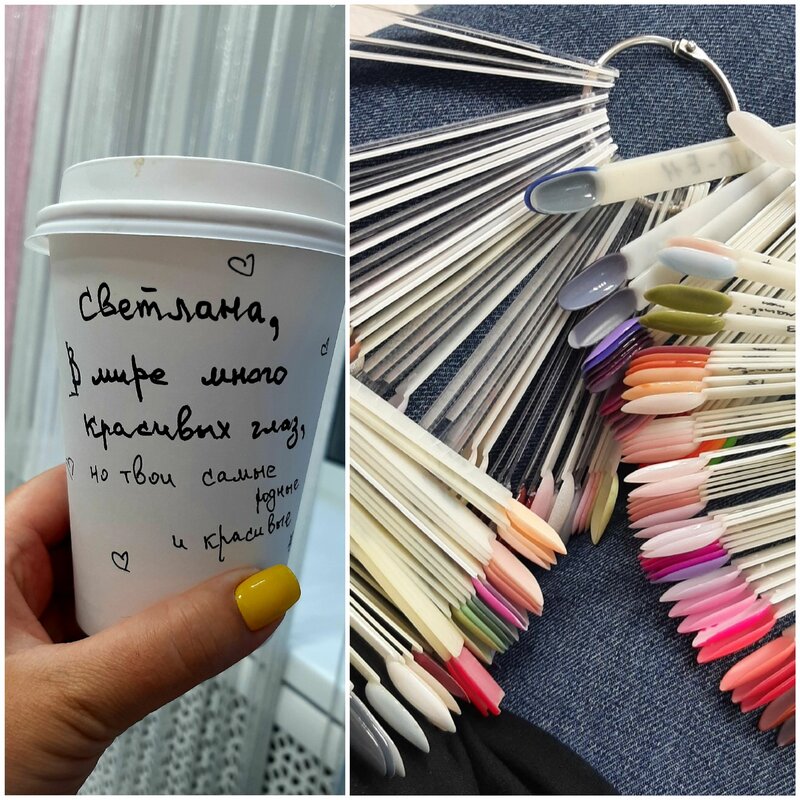 Светлана,
В мире много
красивых глаз,
но твои самые
родные
и красивые